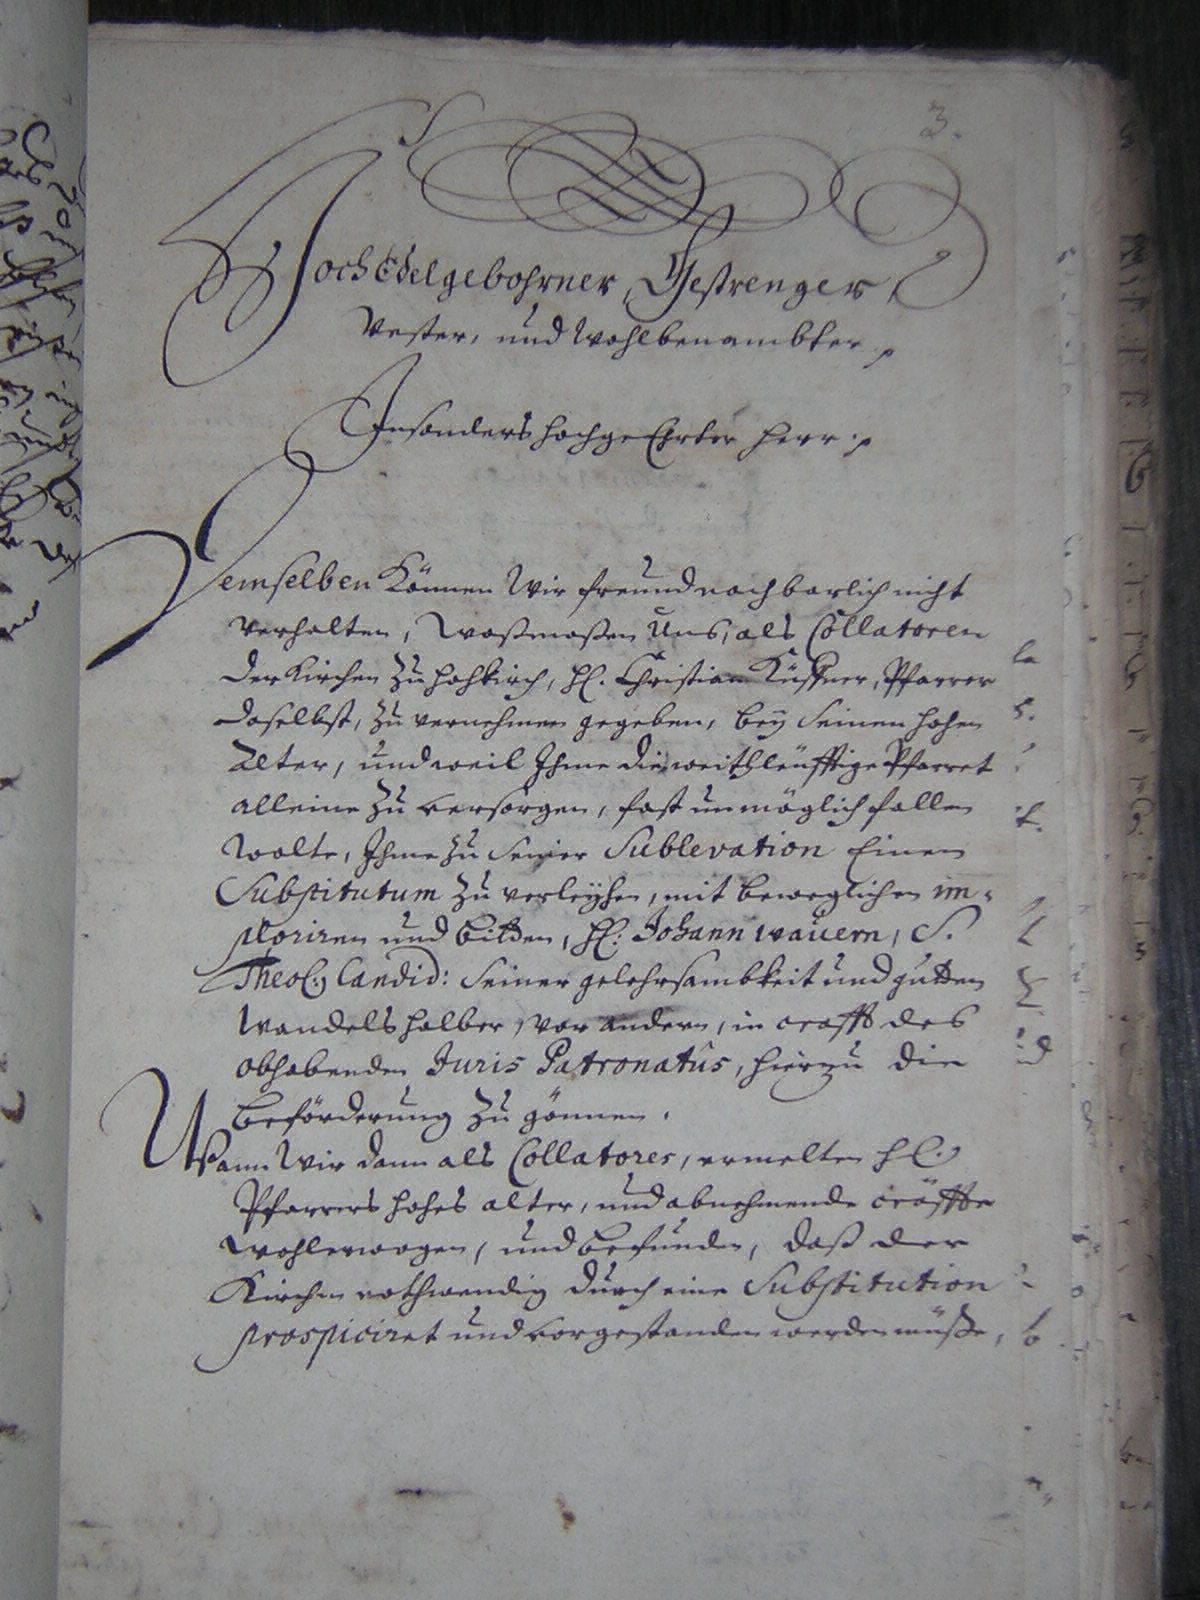 3.
HochEdelgebohrner, Gestrenger,
Vester, und Wohlbenambter p
Insonders hochgeEhrter Herr p
Demselben Können Wir freundnachbarlich nicht
verhalten, Waßmaßen Uns, als Collatoren
der Kirchen zu Hohkirch, Hl. Christian Küffner, Pfarrer
daselbst, zu vernehmen gegeben, beÿ Seinen hohen
Alter, und weil Ihme die weithleüfftige Pfarret
alleine zu versorgen, fast unmöglich fallen
wolte, Ihme zu Seiner Sublevation Einen
Substitutum zu verleÿhen, mit beweglichen im-
ploriren und bitten, Hl: Johann Wauern, S.
Theol: Candid: Seiner gelehrsambkeit und gutten
Wandels halber, vor andern, in crafft des
obhabenden Juris Patronatûs, hierzu die
beförderung zu gönnen.
Wann Wir dann als Collatores, ermelten Hl.
Pfarrers hohes alter, und abnehmende cräffte
wohlerwogen, und befunden, daß der
Kirchen nothwendig durch eine Substitution
prospiciret und vorgestanden werden müße,